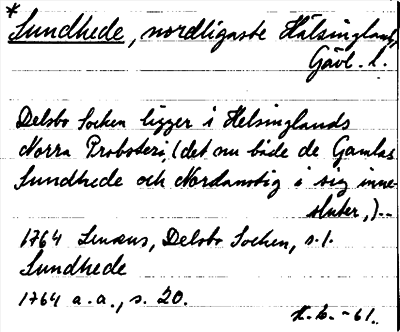 *
Sundhede, nordligaste Hälsingland,
Gävl. l.
Delsbo Socken ligger i Helsinglands
Norra Prosteri, (det nu både de Gamlas
Sundhede och Nordanstig i sig inne-
sluter,)--
1764 Lenæus, Delsbo Socken, s. 1.
Sundhede
1764 a.a., s. 20.
-61.